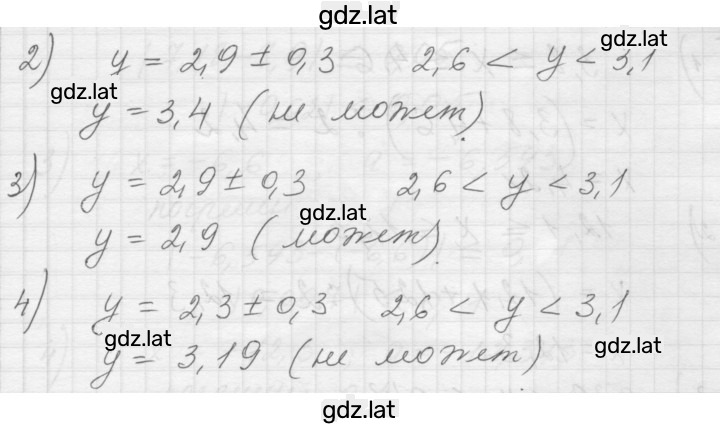 gdz.lat
2) y = 2,9 ± 0,3 2,6 < y < 3,1 gdz.lat
gdz.lat
y = 3,4 (не может).
3) y = 2,9 ± 0,3 2,6 < y < 3,1
gdz.lat
y = 2,9 (может).
4) y = 2,3 ± 0,3 2,6 < y < 3,1
gdz.lat gdz.lat
y = 3,19 (не может).
gdz.lat